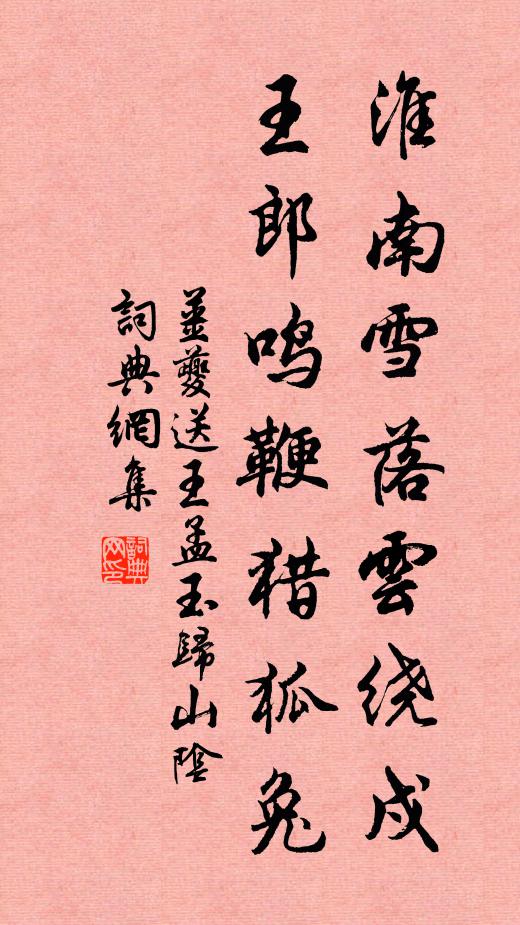 淮南雪落雲绕戍
王郎鸣鞭猎狐兔
姜夔送王孟玉歸山陰
詞典網集
詞典网印